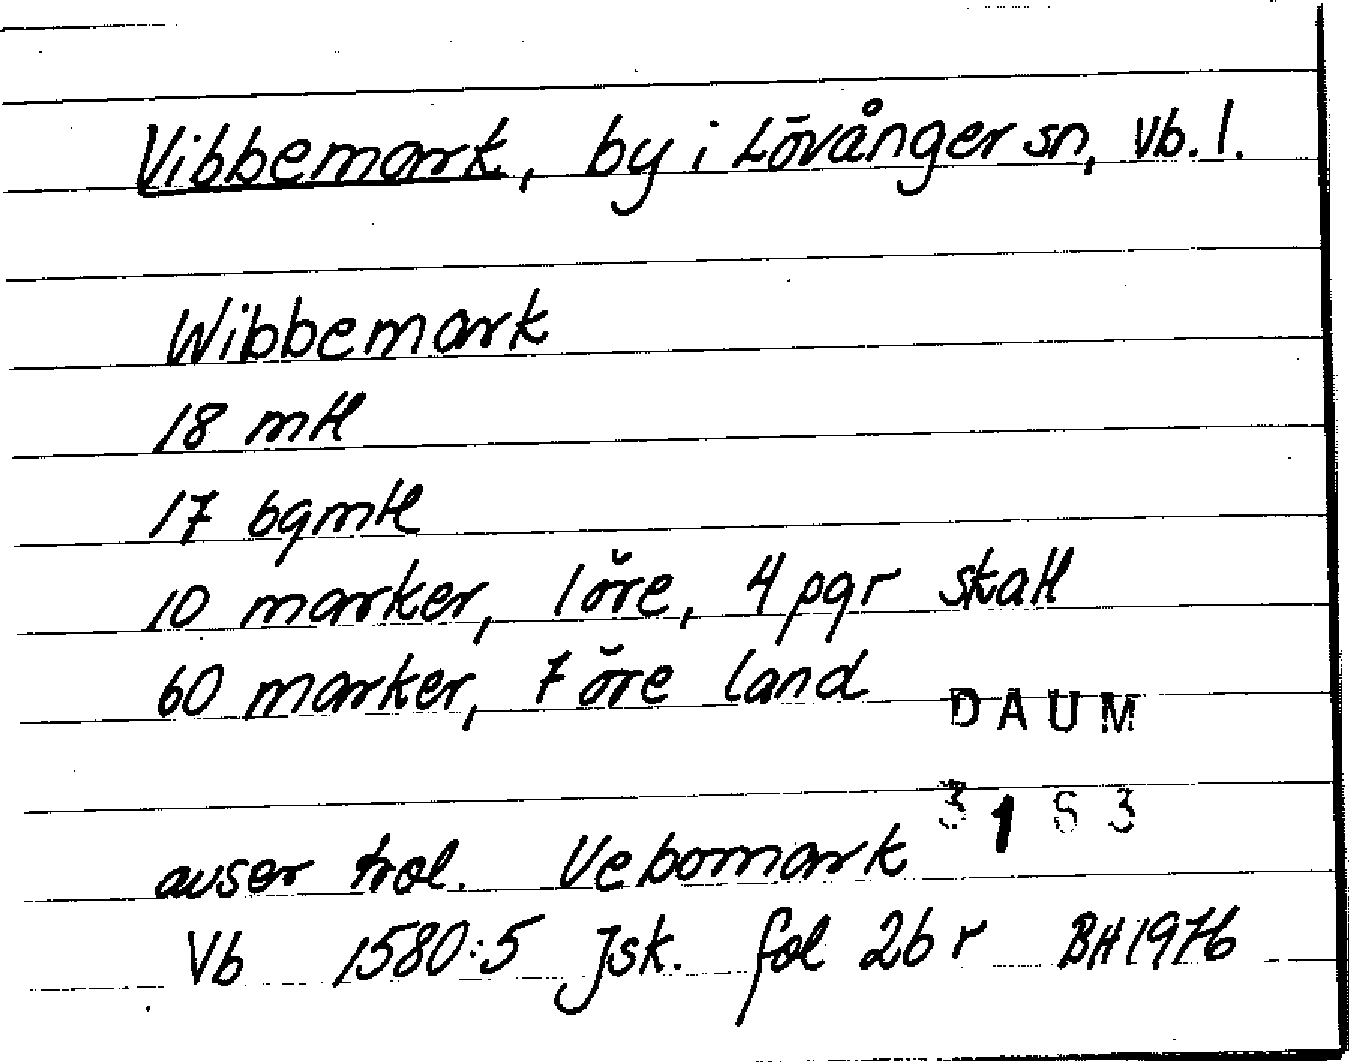 Vibbemark, by i Lövånger sn, Vb. l.
Wibbemark
18 mtl
17 bgmtl
10 marker, 1 öre, 4 pgr skatt
60 marker, 7 öre land
DAUM
3153
avser trol. Vebomark
Vb 1580:5 Jsk. fol 26 r BH 1976